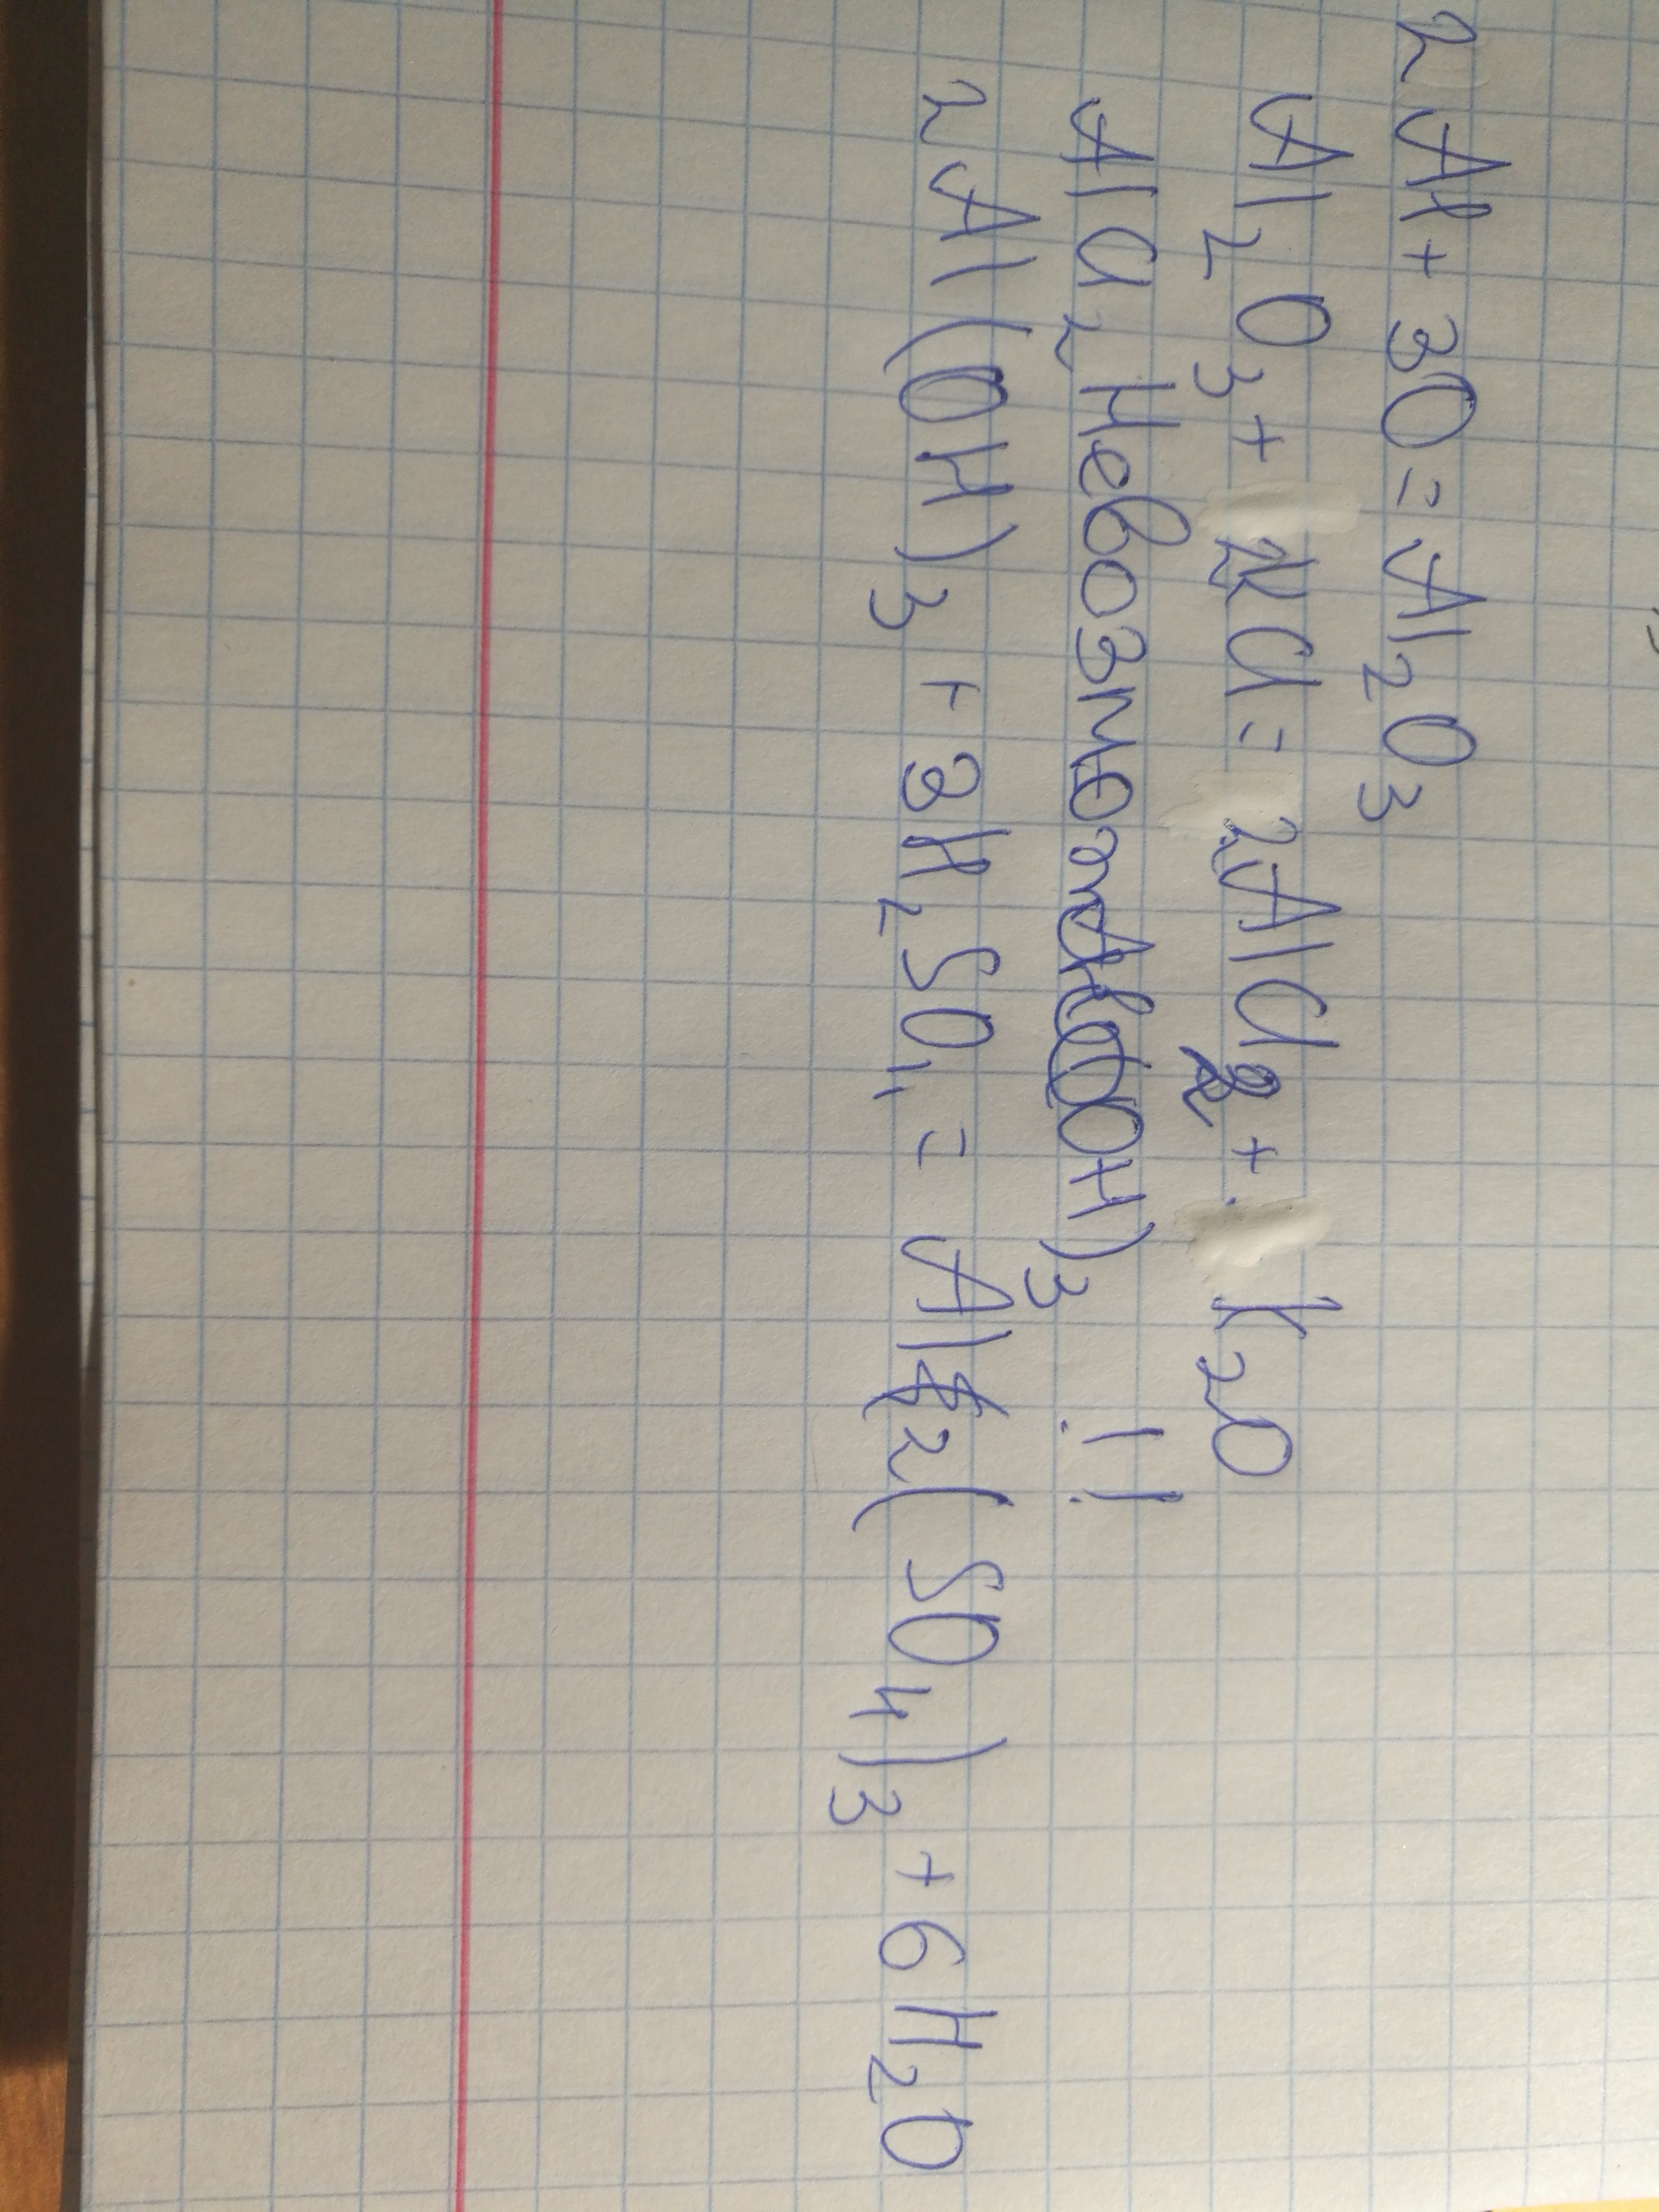 2Al + 3O = Al2O3
Al2O3 + 2KCl = 2AlCl2 + K2O
AlCl2 Невозмот Al(OH)3 !!
2Al(OH)3 + 3H2SO4 = Al2(SO4)3 + 6H2O